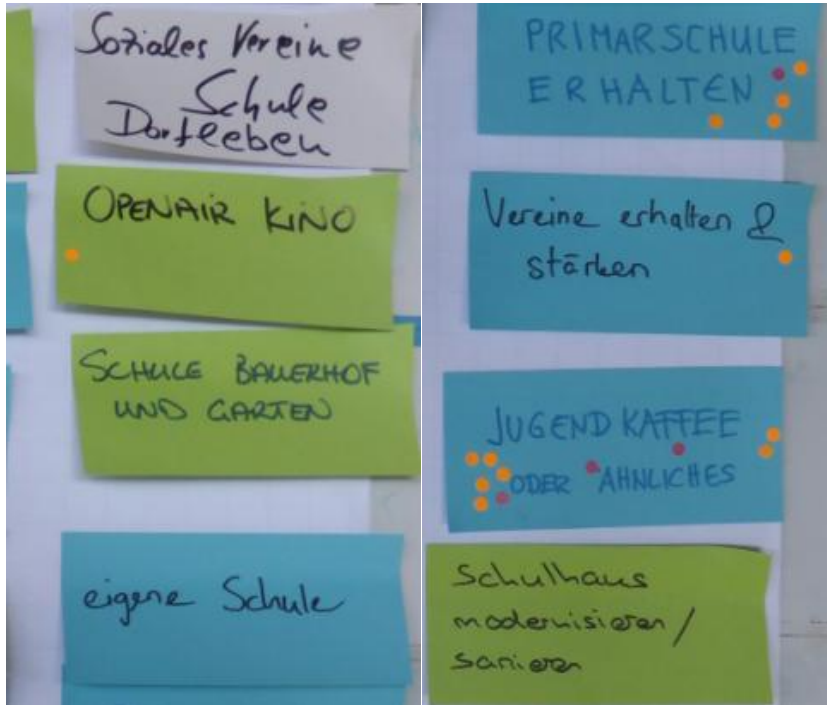 Soziales Vereine
Schule
Dorfleben
OPENAIR KINO
SCHULE BAUERHOF
UND GARTEN
eigene Schule
PRIMARSCHULE
ERHALTEN
Vereine erhalten &
stärken
JUGEND KAFFEE
ODER ÄHNLICHES
Schulhaus
modernisieren/
sanieren